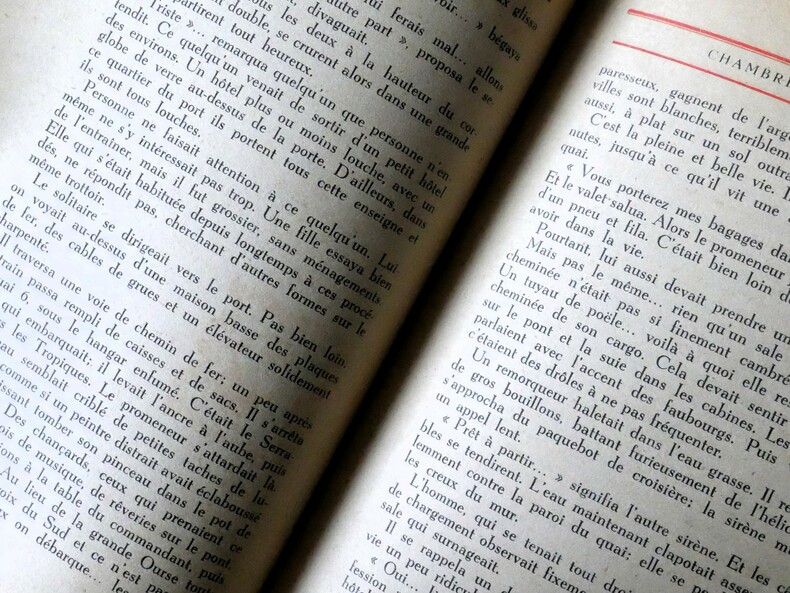 glissa
lui ferais mal... allons
voir... » bégaya
autre part », proposa le se-
divaguait.
ous les deux à la hauteur du cor-
double, se crurent alors dans une grande
partirent tout heureux.
tendit. Ce quelqu'un venait de sortir d'un petit hôtel
Triste »... remarqua quelqu'un que personne n'en-
des environs. Un hôtel plus ou moins louche, avec un
globe de verre au-dessus de la porte. D'ailleurs, dans
ce quartier du port ils portent tous cette enseigne et
ils sont tous louches.
Personne ne faisait attention à ce quelqu'un. Lui-
même ne s'y intéressait pas trop. Une fille essaya bien
de l'entraîner, mais il fut grossier, sans ménagements.
Elle qui s'était habituée depuis longtemps à ces procé-
dés, ne répondit pas, cherchant d'autres formes sur le
même trottoir.
Le solitaire se dirigeait vers le port. Pas bien loin,
on voyait au-dessus d'une maison basse des plaques
de fer, des cables de grues et un élévateur solidement
charpenté.
Il traversa une voie de chemin de fer; un peu après
train passa rempli de caisses et de sacs. Il s'arrêta
uai 6, sous le hangar enfumé. C'était le Serra-
qui embarquait; il levait l'ancre à l'aube, puis
s les Tropiques. Le promeneur s'attardait là.
au semblait criblé de petites taches de lu-
comme si un peintre distrait avait éclaboussé
issant tomber son pinceau dans le pot de
Des chançards, ceux qui prenaient ce
ois de musique, de rêveries sur le pont.
ions à la table du commandant, puis
Au lieu de la grande Ourse tout
oix du Sud et ce n'est pas
x on débarque... les
CHAMBRE
paresseux, gagnent de l'arge
villes sont blanches, terriblem
aussi, à plat sur un sol outra
C'est la pleine et belle vie. I
nutes, jusqu'à ce qu'il vit une
quai.
« Vous porterez mes bagages da
Et le valet salua. Alors le promeneur
d'un pneu et fila. C'était bien loin d
avoir dans la vie.
Pourtant lui aussi devait prendre un
Mais pas le même... rien qu'un sale
cheminée n'était pas si finement cambré
Un tuyau de poële... voilà à quoi elle res
cheminée de son cargo. Cela devait sentir
sur le pont et la suie dans les cabines. Les
parlaient avec l'accent des faubourgs. Puis
c'étaient des drôles à ne pas fréquenter.
Un remorqueur haletait dans l'eau grasse. Il re
de gros bouillons, battant furieusement de l'hélic
s'approcha du paquebot de croisière; la sirène mu
un appel lent.
« Prêt à partir... » signifia l'autre sirène. Et les câ
bles se tendirent. L'eau maintenant clapotait assem
lemment contre la paroi du quai; elle se pe
les creux du mur.
L'homme, qui se tenait tout droi
de chargement observait fixeme
sale qui surnageait.
Il se rappela un d
vie un peu ridicul
« Oui... l
fession
hôt